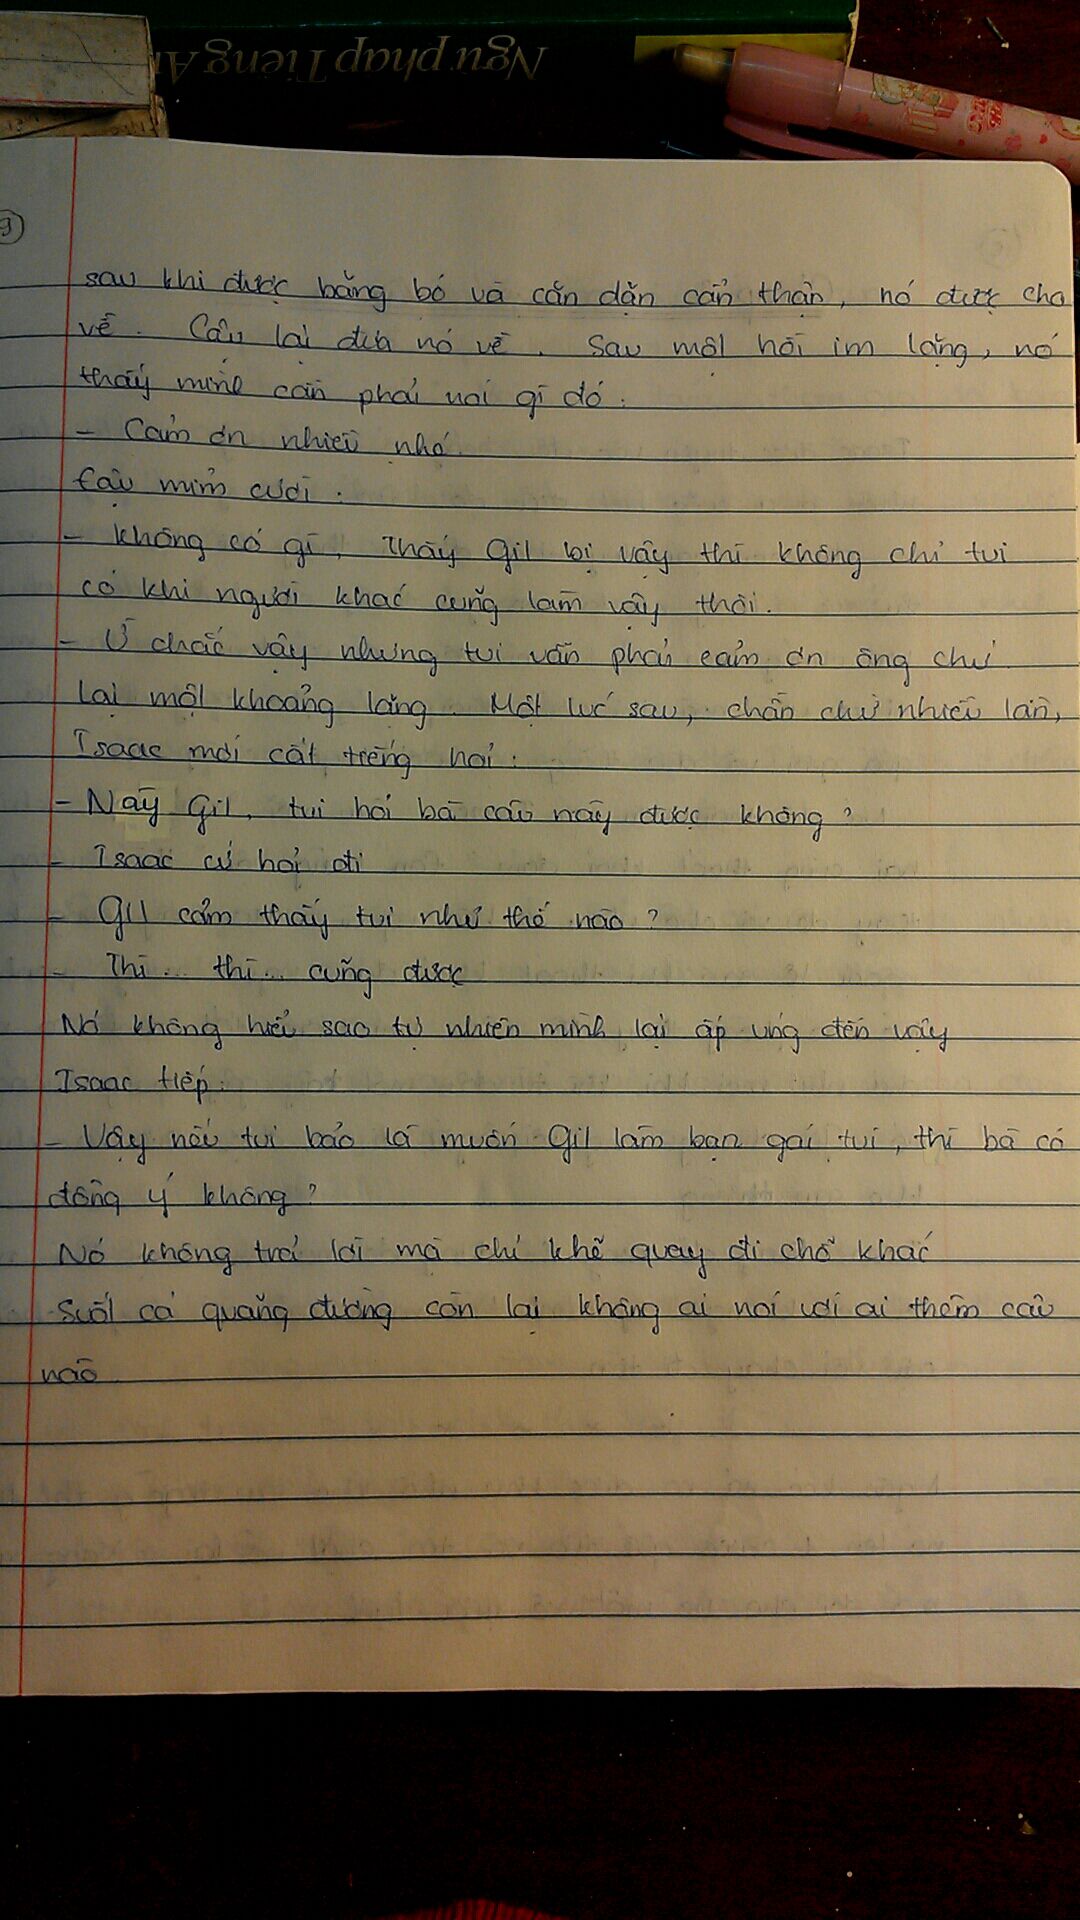 Ngữ pháp Tiếng An
9
sau khi được băng bó và căn dặn cẩn thận, nó được cho
về. Cậu lại đưa nó về. Sau một hồi im lặng, nó
thấy mình cần phải nói gì đó.
- Cảm ơn nhiều nhé.
Cậu mỉm cười.
- Không có gì, Thấy Gil bị vậy thì không chỉ tui
có khi người khác cũng làm vậy thôi.
- Ừ chắc vậy nhưng tui vẫn phải cảm ơn ông chứ.
Lại một khoảng lặng. Một lúc sau, chần chừ nhiều lần,
Isaac mới cất tiếng hỏi:
- Này Gil, tui hỏi bà câu này được không?
- Isaac cứ hỏi đi
- Gil cảm thấy tui như thế nào?
- Thì... thì... cũng được
Nó không hiểu sao tự nhiên mình lại ấp úng đến vậy
Isaac tiếp:
- Vậy nếu tui bảo là muốn Gil làm bạn gái tui, thì bà có
đồng ý không?
Nó không trả lời mà chỉ khẽ quay đi chỗ khác
Suốt cả quãng đường còn lại không ai nói với ai thêm câu
nào